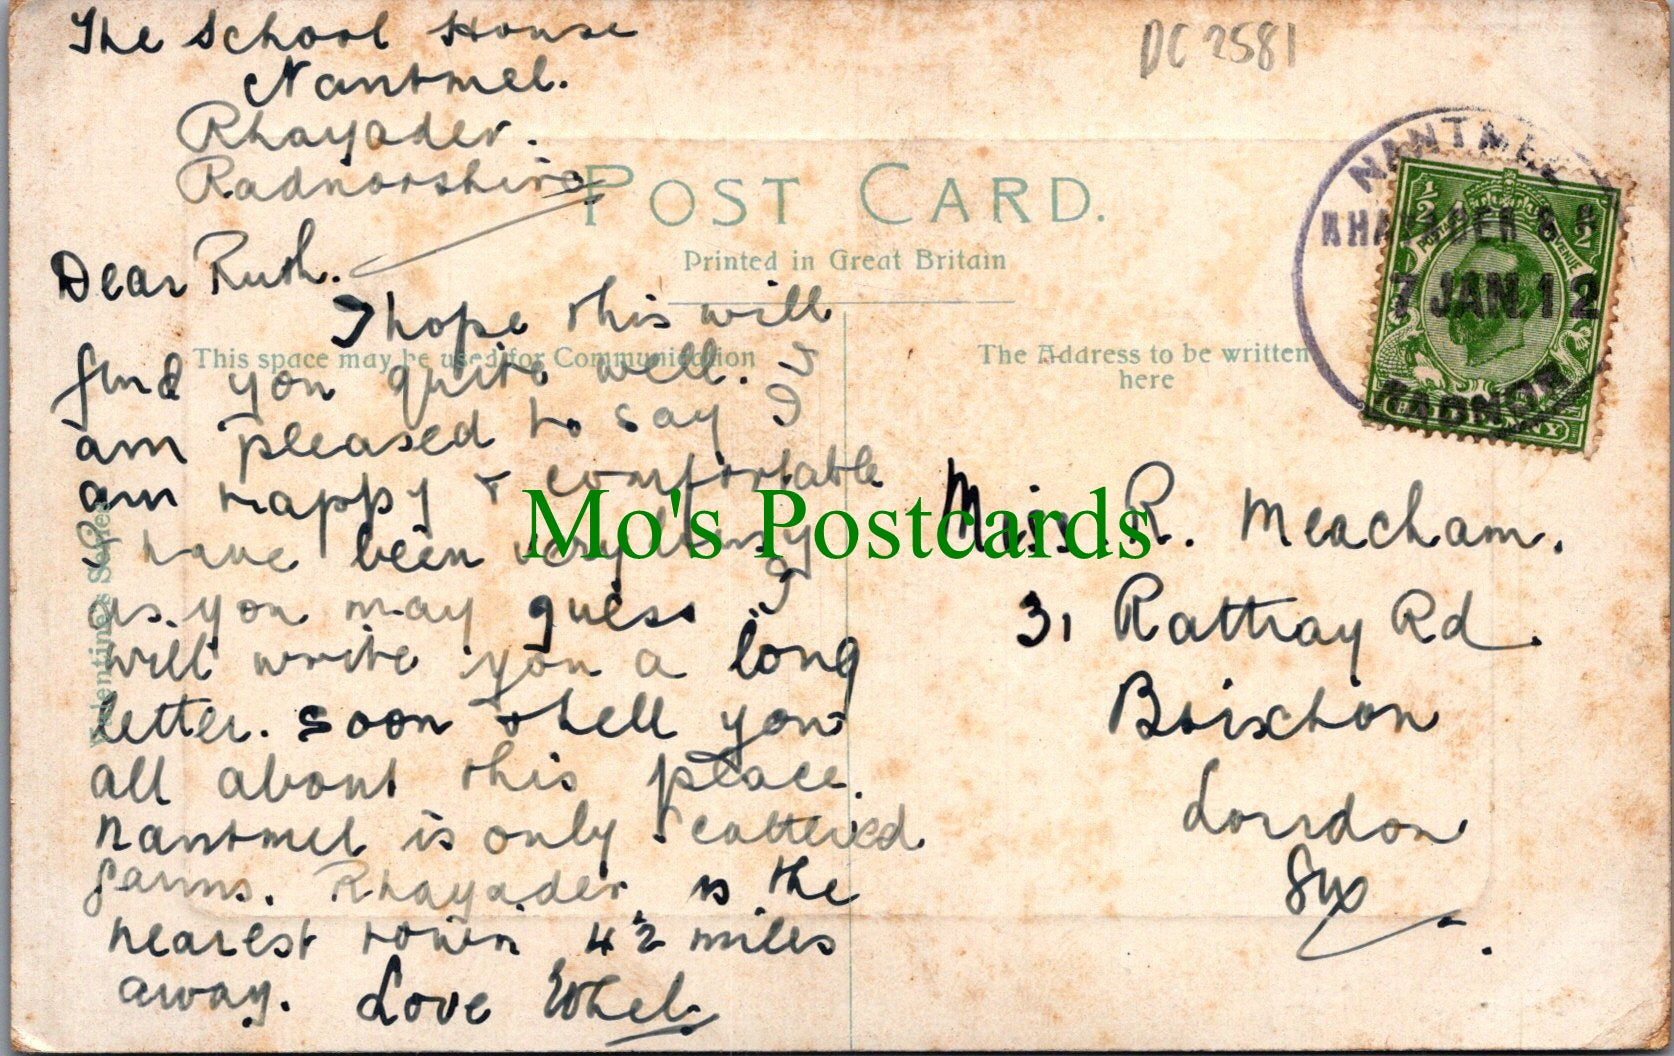 The School House
Nantmel.
Rhayader.
Radnorshire
DC 2581
POST CARD.
Printed in Great Britain
This space may be used for Communication
The Address to be written
here
Valentine's Series
NANTMEL
RHAYADER S.O
7 JAN. 12
RADNOR
POSTAGE REVENUE
HALFPENNY
Dear Ruth.
I hope this will
find you quite well.
am pleased to say I
am happy & comfortable
I have been very busy
as you may guess I
will write you a long
letter. soon & tell you
all about this place.
Nantmel is only scattered
farms. Rhayader is the
nearest town 4½ miles
away. Love Ethel.
Miss. R. Meacham.
31 Rattray Rd.
Brixton
London
SW
Mo's Postcards